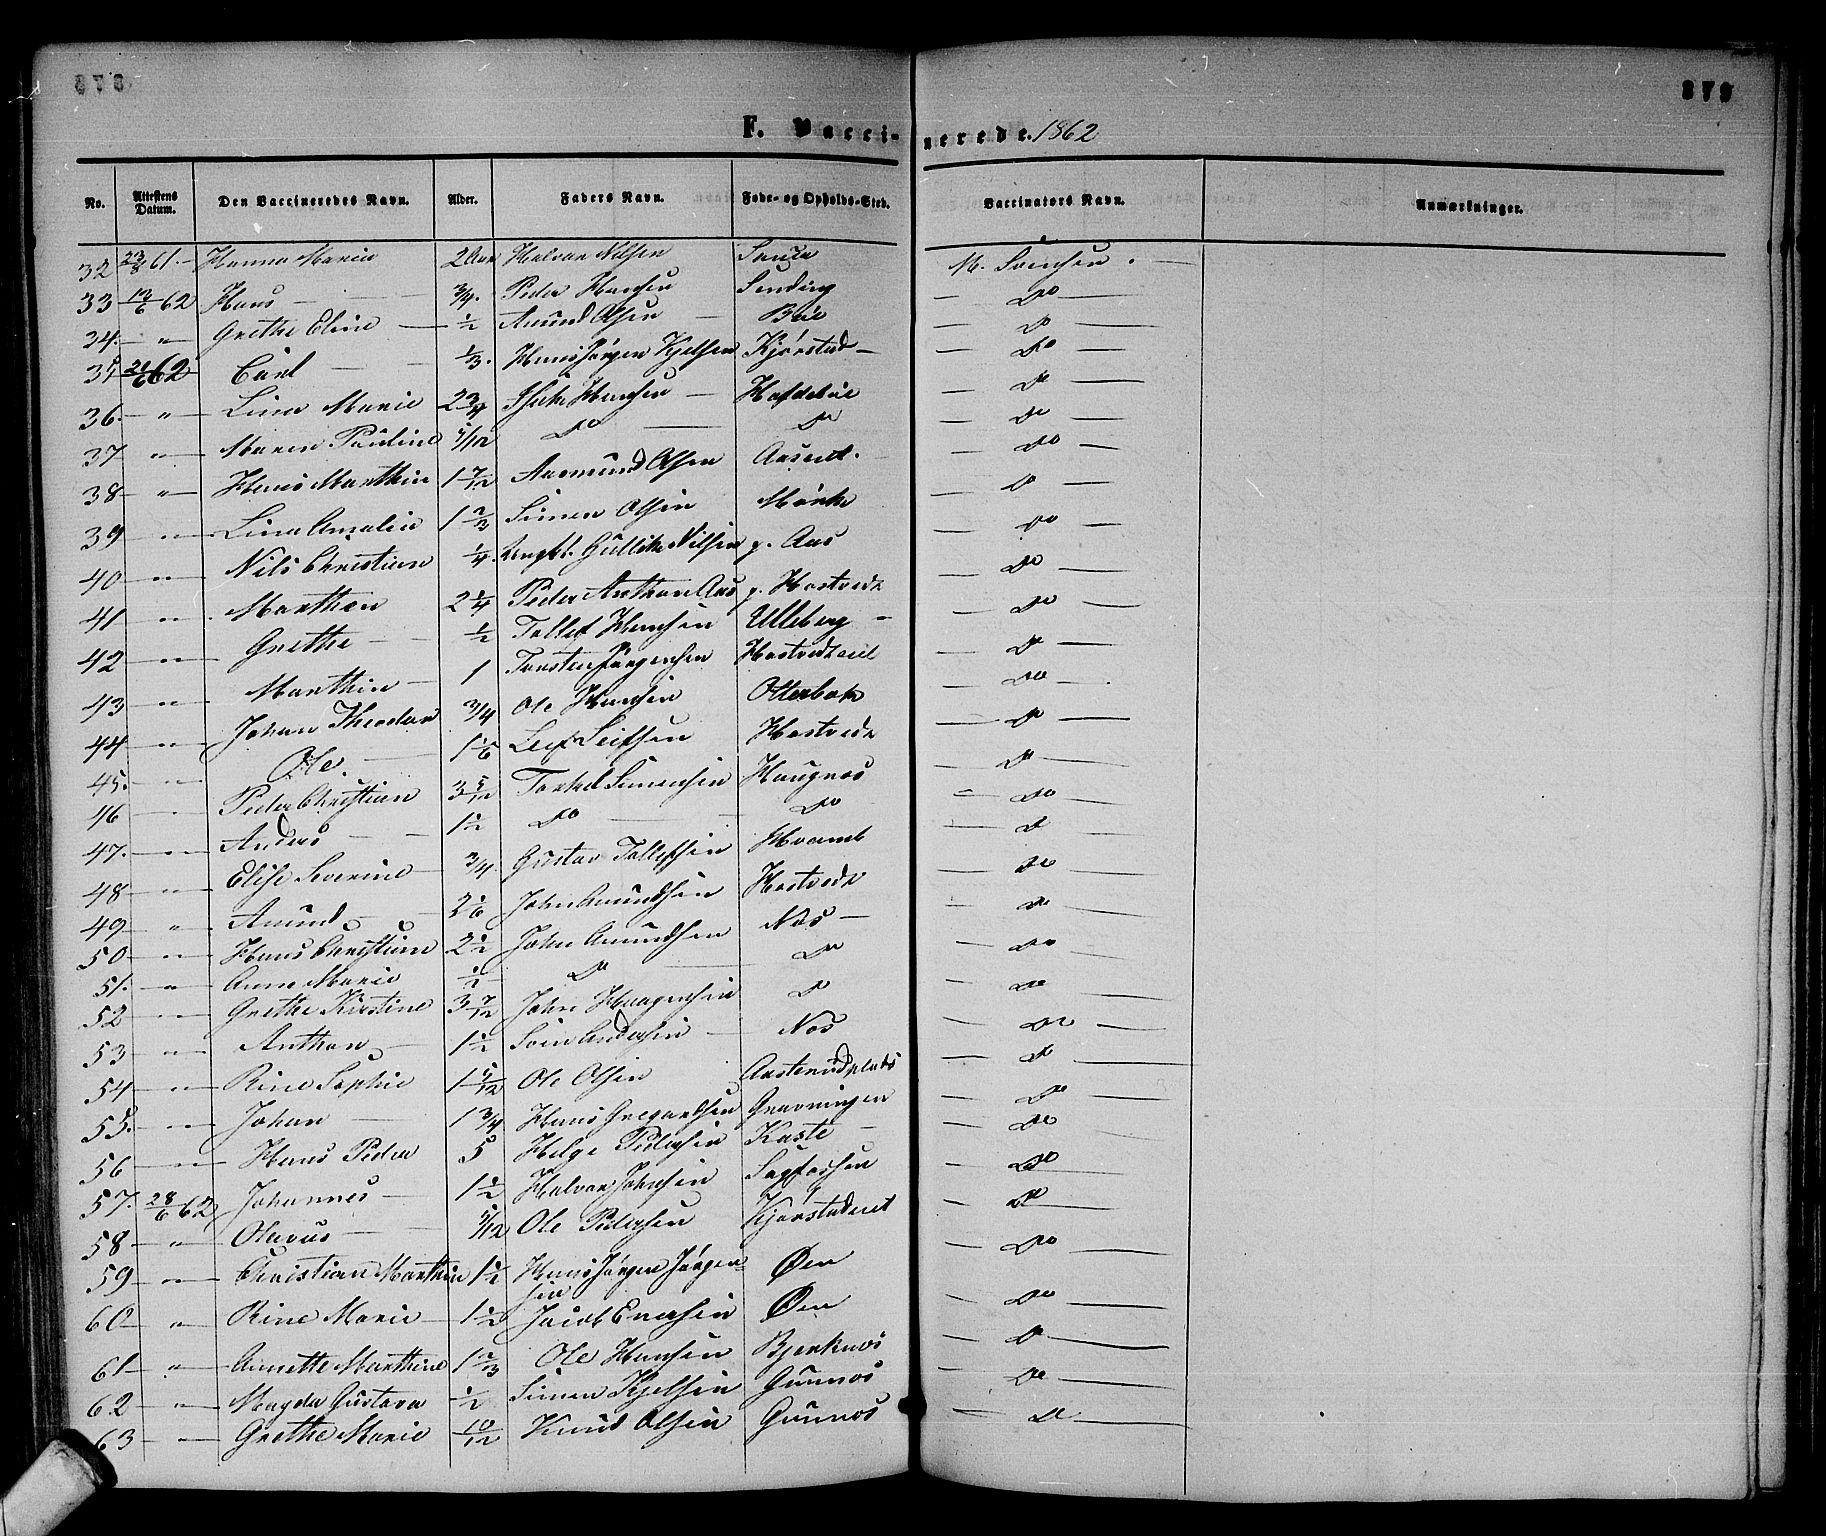 378
379
F. Vacci- nerede. 1862
No. Attestens Datum. Den Vaccineredes Navn. Alder. Faders Navn. Føde- og Opholds-Sted. Vaccinators Navn. Anmærkninger.
32 23/8 61. — Hanna Maria 2 Aar Halvor Nilsen M. Svensen.
33 13/6 62 Hans — 3/4. Peder Hansen Sending — Do —
34. — " — Grethe Eline — 1/2 Amund Olsen — Bøe — Do —
35 21/6 62 Carl — 1/3. Hans Jørgen Kjelsen Kjørstad — — Do —
36 — " — Lina Marie 2 3/4 Hansen — — Do —
37 — " — Maren Pauline /12 Do — Do — Do —
38 — " — Hans Marthin 1 7/12 Aasmund Olsen Aaseiet. — Do —
39 — " — Lina Amalia 1 2/3 Simen Olsen Mørke — Do —
40 — " — Nils Christian 1/4. Ungk. Gullik Nilsen p. Aas — Do —
41 — " — Marthea 2 1/4 Peder Anthon Aas p. Hostvedt — Do —
42 — " — Grethe — 1/2 Tollef Hansen Ulleberg — — Do —
43 — " — Marthin — 1 Torsten Jørgensen Hostvedteiet — Do —
44 — " — Johan Theodor 3/4 Ole Hansen Otterbek — Do —
45. — " — Ole. — 1 1/6 Leif Leifsen Hostvedt — Do —
46 — " — Peder Christian 3 5/12 Torkel Simensen Haugnæs — Do —
47. — " — Anders — 1 1/2 Do — Do — Do —
48 — " — Elise Severine — 3/4. Gustav Tollefsen Hvamb — Do —
49 — " — Amund — 2 1/6 John Amundsen Hostvedt — Do —
50 — " — Hans Christian 2 1/2 John Amundsen Næs — — Do —
51. — " — Anne Marie 1/2 Do — Do — Do —
52 — " — Grethe Kirstine 3 7/12 John Haagensen Do — Do —
53 — " — Anthon — 1 1/2 Sven Andersen — Næs — Do —
54 — " — Rine Sophie 1 5/12 Ole Olsen Aasterudplads — Do —
55. — " — Johan — 1 3/4 Hans Gregardsen Gravningen — Do —
56 — " — Hans Peder 5 Helge Pedersen Kaste — — Do —
57. 28/6 62 Johannes — 1 1/2 Halvor Johnsen Sagfossen — Do —
58 — " — Olavus — /12 Ole Pedersen Kjørstadeiet — Do —
59 — " — Christian Marthin 1 1/2 Hans Jørgen Jørgen- Øen — Do —
sen
60 — " — Rine Marie — 1 1/2 Jacob Enersen Øen — Do —
61 — " — Annette Marthine 1 2/3 Ole Hansen Bjerknæs — Do —
62 — " — Magda Gustava 1/2 Simen Kjelsen Gunnæs — Do —
63 — " — Grethe Marie 10/12 Knud Olsen Gunnæs — Do —